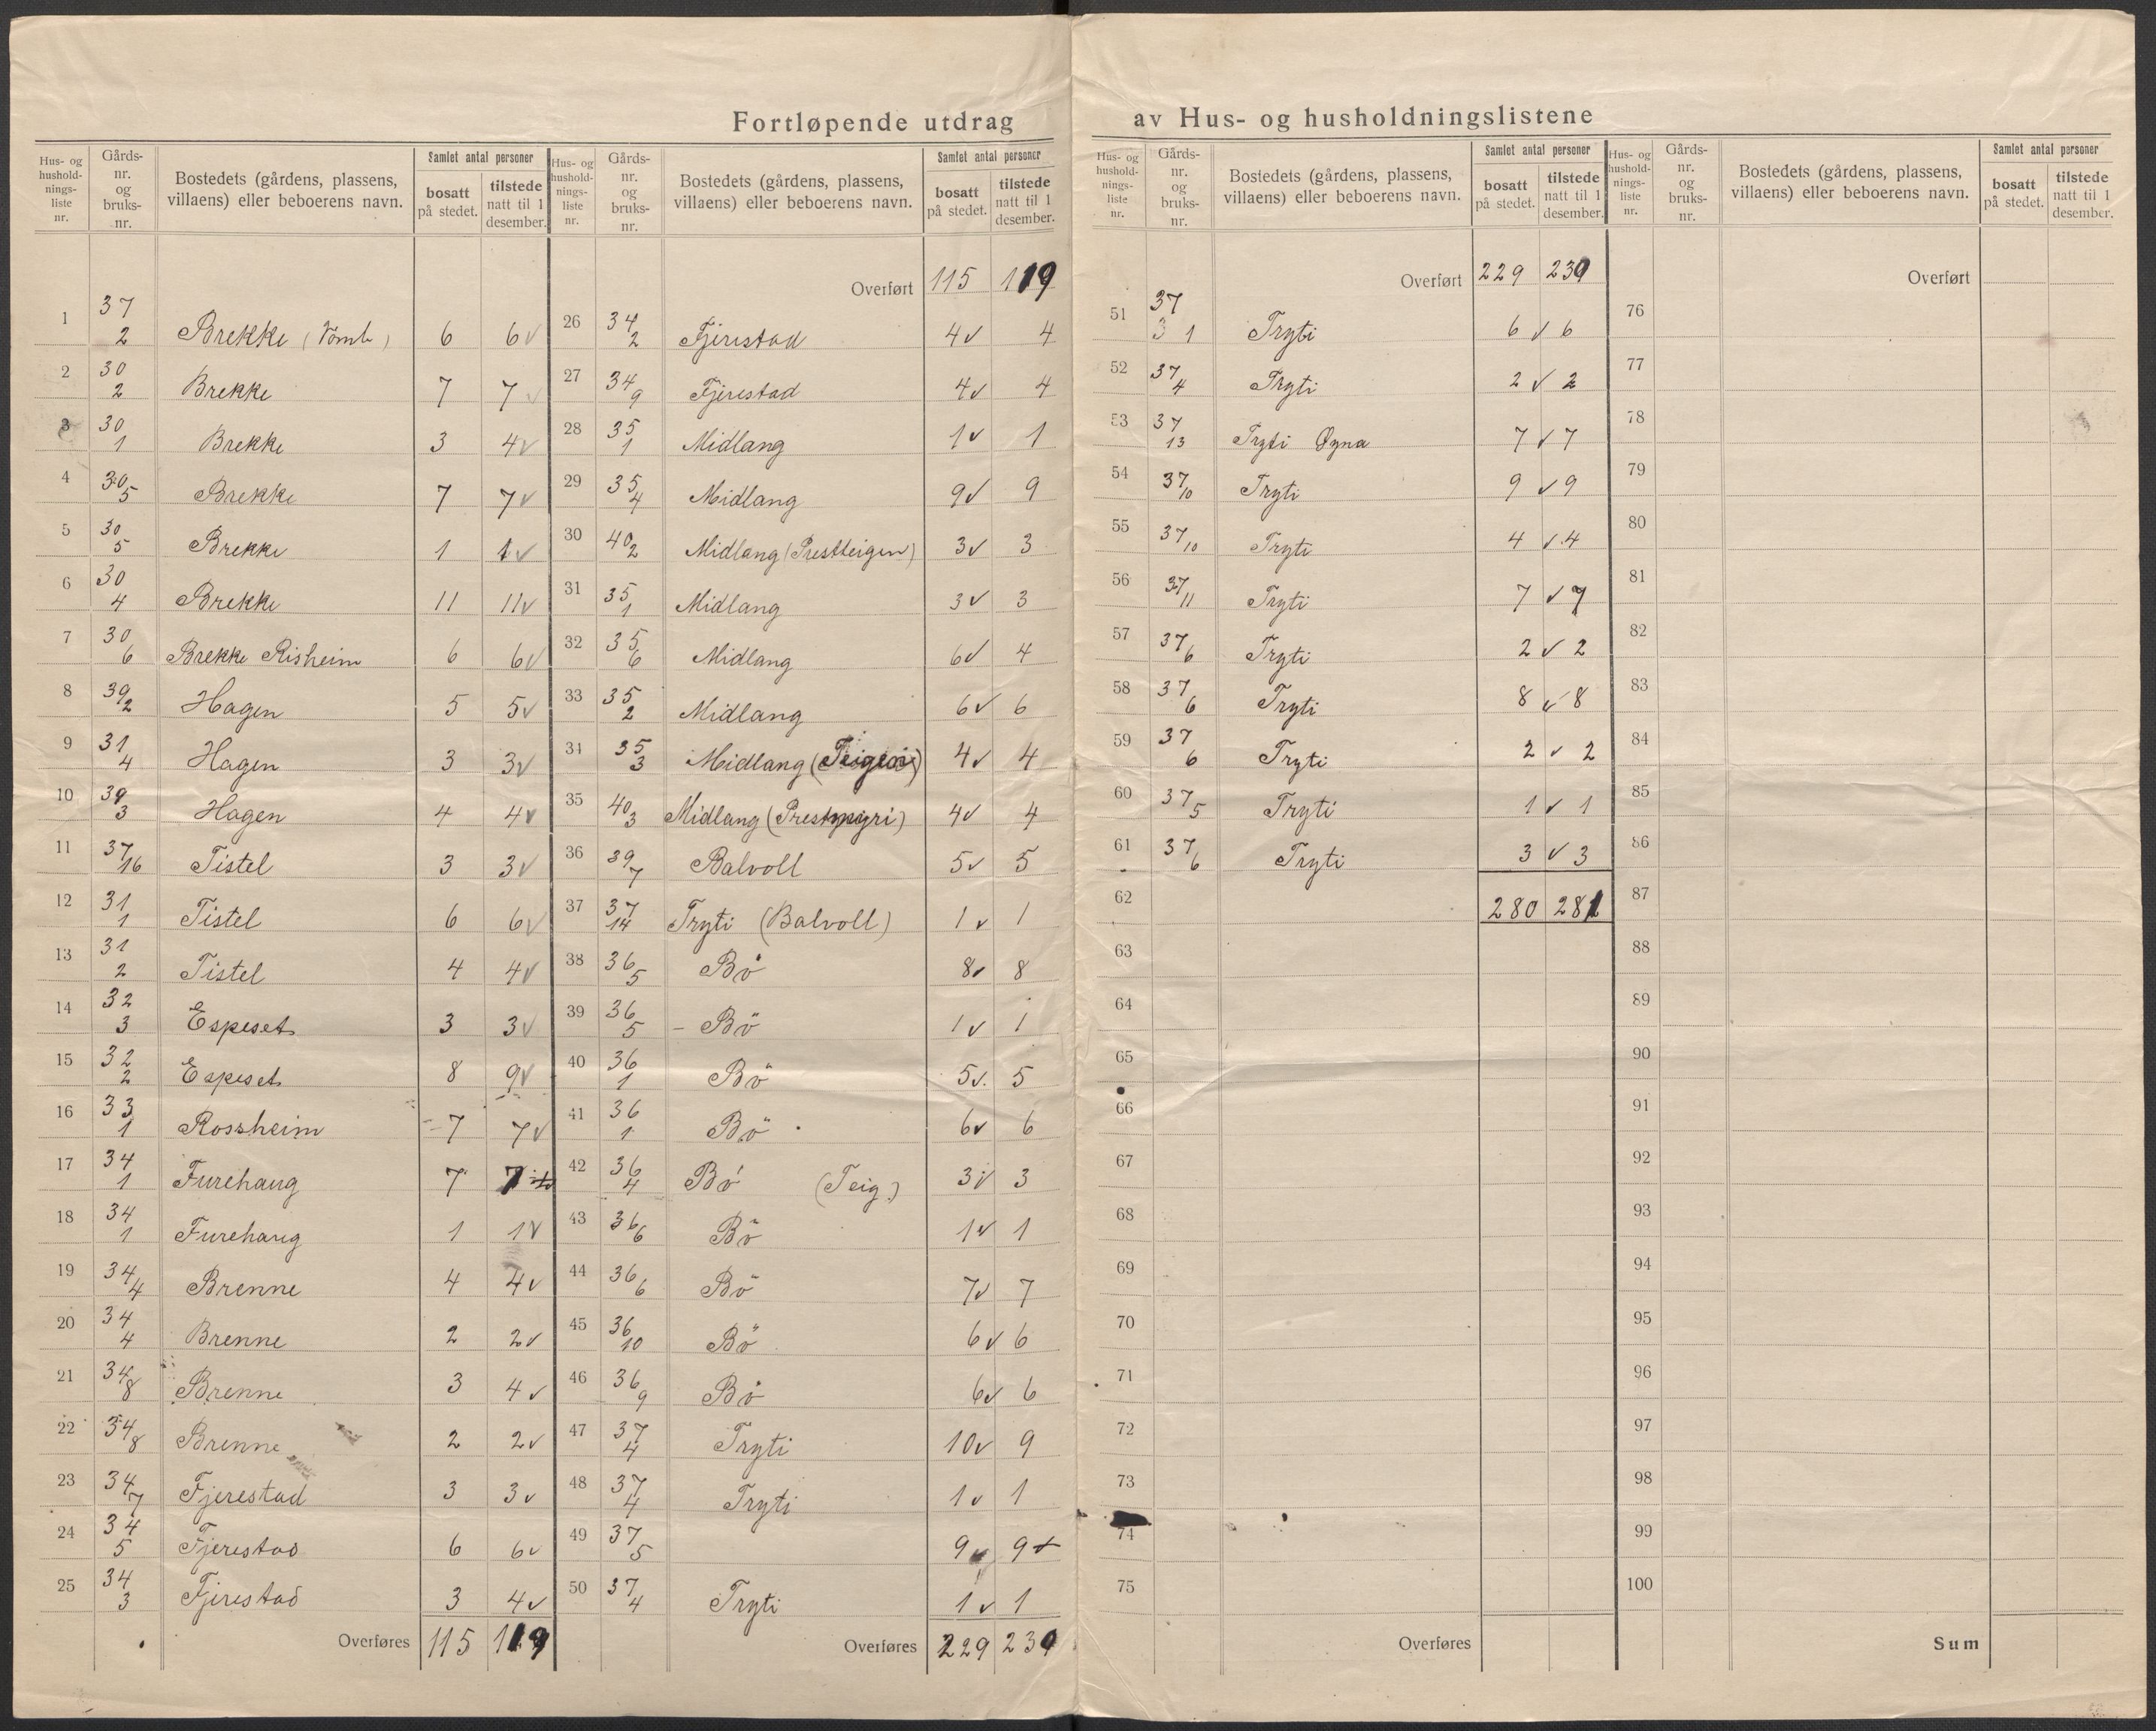 Fortløpende utdrag av Hus- og husholdningslistene
Hus- og husholdnings-liste nr. Gårds-nr. og bruks-nr. Bostedets (gårdens, plassens, villaens) eller beboerens navn. Samlet antal personer bosatt på stedet. tilstede natt til 1 desember.
1 37 2 Brekke (Tomb) 6 6 v
2 30 2 Brekke 7 7 v
3 30 1 Brekke 3 4 v
4 30 5 Brekke 7 7 v
5 30 5 Brekke 1 1 v
6 30 4 Brekke 11 11 v
7 30 6 Brekke Risheim 6 6 v
8 39 2 Hagen 5 5 v
9 31 4 Hagen 3 3 v
10 39 3 Hagen 4 4 v
11 37 16 Tistel 3 3 v
12 31 1 Tistel 6 6 v
13 31 2 Tistel 4 4 v
14 32 3 Espeset 3 3 v
15 32 2 Espeset 8 9 v
16 33 1 Rossheim 7 7 v
17 34 1 Furehaug 7 7
18 34 1 Furehaug 1 1 v
19 34 4 Brenne 4 4 v
20 34 4 Brenne 2 2 v
21 34 8 Brenne 3 4 v
22 34 8 Brenne 2 2 v
23 34 7 Fjerestad 3 3 v
24 34 5 Fjerestad 6 6 v
25 34 3 Fjerestad 3 4 v
Overføres 115 119
Hus- og husholdnings-liste nr. Gårds-nr. og bruks-nr. Bostedets (gårdens, plassens, villaens) eller beboerens navn. Samlet antal personer bosatt på stedet. tilstede natt til 1 desember.
Overført 115 119
26 34 2 Fjerestad 4 v 4
27 34 9 Fjerestad 4 v 4
28 35 1 Midlang 1 v 1
29 35 4 Midlang 9 v 9
30 40 2 Midlang (Prestteigen) 3 v 3
31 35 1 Midlang 3 v 3
32 35 6 Midlang 6 v 4
33 35 2 Midlang 6 v 6
34 35 3 Midlang (Teigen) 4 v 4
35 40 3 Midlang 4 v 4
36 39 7 Balvoll 5 v 5
37 37 14 Tryti (Balvoll) 1 v 1
38 36 5 Bö 8 v 8
39 36 5 - Bö 1 v 1
40 36 1 Bö 5 v. 5
41 36 1 Bö 6 v 6
42 36 4 Bö (Teig.) 3 v 3
43 36 6 Bö 1 v 1
44 36 6 Bö 7 v 7
45 36 10 Bö 6 v 6
46 36 9 Bö 6 v 6
47 37 4 Tryti 10 v 9
48 37 4 Tryti 1 v 1
49 37 5 9 v 9 +
50 37 4 Tryti 1 v 1
Overføres 229 230
Hus- og husholdnings-liste nr. Gårds-nr. og bruks-nr. Bostedets (gårdens, plassens, villaens) eller beboerens navn. Samlet antal personer bosatt på stedet. tilstede natt til 1 desember.
Overført 229 230
51 37 3 1 Tryti 6 v 6
52 37 4 Tryti 2 v 2
53 37 13 Tryti Øyna 7 v 7
54 37 10 Tryti 9 v 9
55 37 10 Tryti 4 v 4
56 37 11 Tryti 7 v 7
57 37 6 Tryti 2 v 2
58 37 6 Tryti 8 v 8
59 37 6 Tryti 2 v 2
60 37 5 Tryti 1 v 1
61 37 6 Tryti 3 v 3
62 280 281
63
64
65
66
67
68
69
70
71
72
73
74
75
Overføres
Hus- og husholdnings-liste nr. Gårds-nr. og bruks-nr. Bostedets (gårdens, plassens, villaens) eller beboerens navn. Samlet antal personer bosatt på stedet. tilstede natt til 1 desember.
Overført
76
77
78
79
80
81
82
83
84
85
86
87
88
89
90
91
92
93
94
95
96
97
98
99
100
Sum